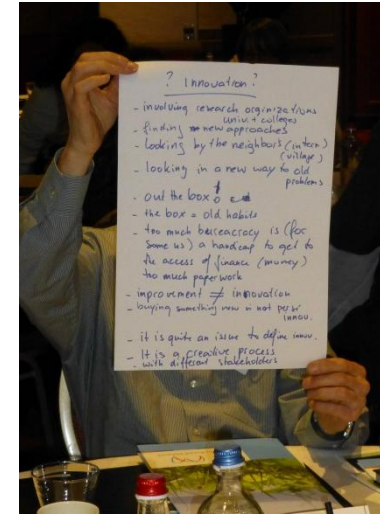 ? Innovation ?
- involving research orginizations
univ. + colleges
- finding new approaches
- looking by the neighbors (intern)
(village)
- looking in a new way to old
problems
- out the box
- the box = old habits
- too much bureacracy is (for
some us) a handicap to get to
the access of finance (money)
too much paperwork
- improvement ≠ innovation
- buying something new is not per sé
innov.
- it is quite an issue to define innov.
- It is a creative process
- with different stakeholders